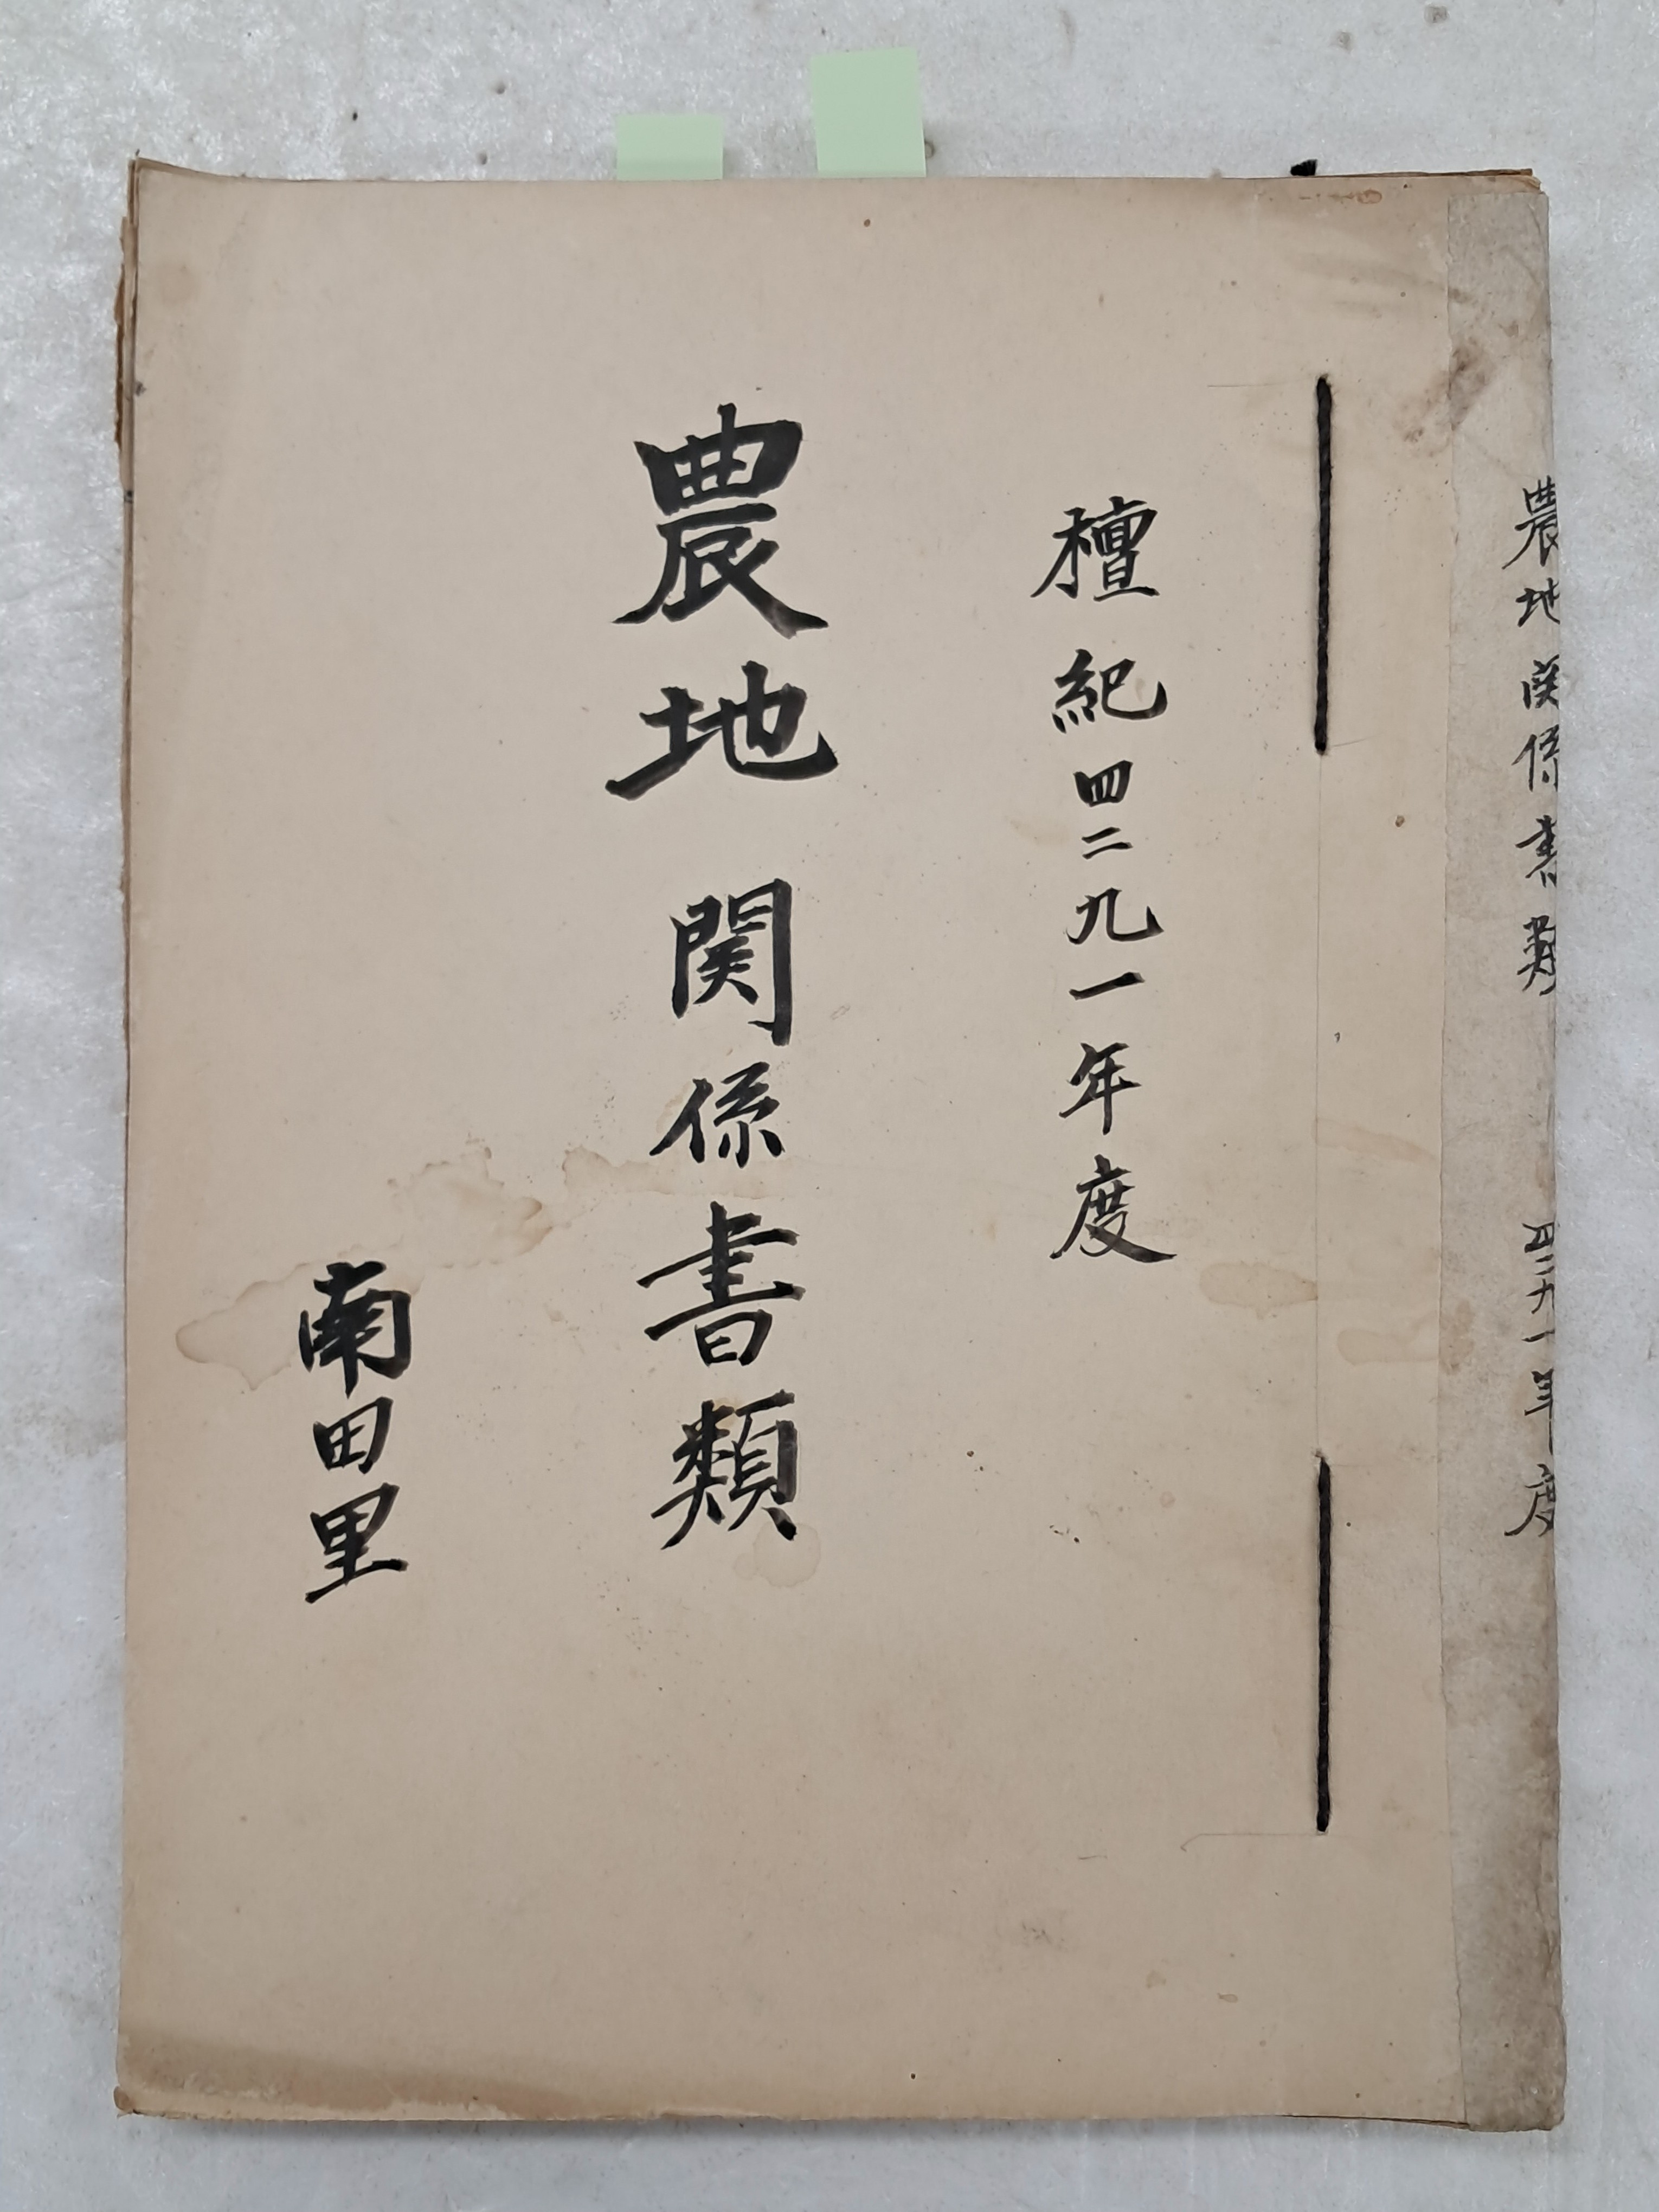 農地関係書類 四二九一年度
檀紀四二九一年度
農地関係書類
南田里